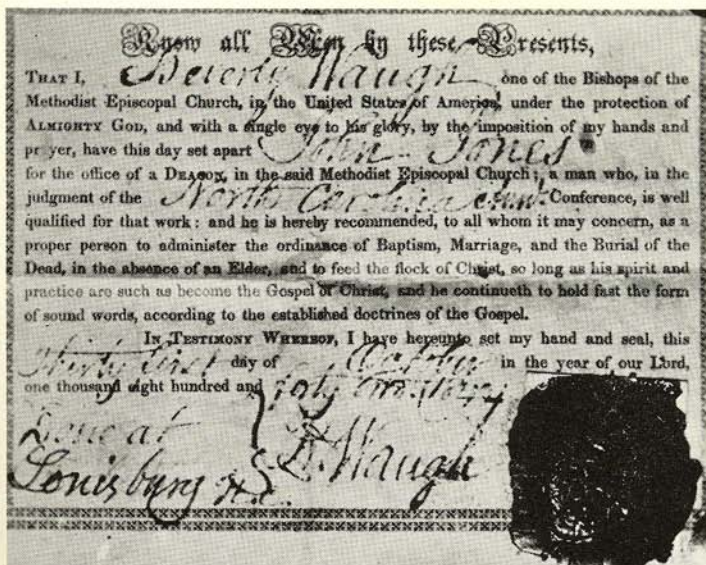 Know all Men by these Presents,
THAT I, Beverly Waugh one of the Bishops of the
Methodist Episcopal Church, in the United States of America, under the protection of
ALMIGHTY GOD, and with a single eye to his glory, by the imposition of my hands and
pr yer, have this day set apart John Jones
for the office of a DEACON, in the said Methodist Episcopal Church; a man who, in the
judgment of the North Carolina Ann. Conference, is well
qualified for that work: and he is hereby recommended, to all whom it may concern, as a
proper person to administer the ordinance of Baptism, Marriage, and the Burial of the
Dead, in the absence of an Elder, and to feed the flock of Christ, so long as his spirit and
practice are such as become the Gospel of Christ, and he continueth to hold fast the form
of sound words, according to the established doctrines of the Gospel.
IN TESTIMONY WHEREOF, I have hereunto set my hand and seal, this
Thirty first day of October in the year of our Lord,
one thousand eight hundred and
Done at
Louisburg N.C.
B. Waugh